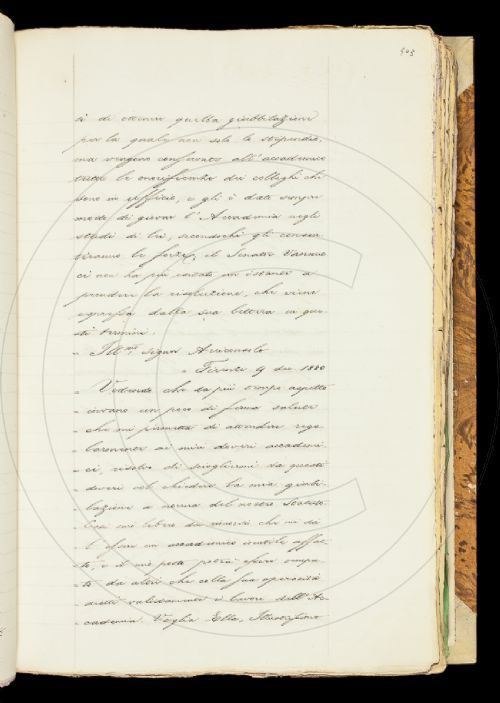 505
tà di ottener quella giubbilazione
per la quale non solo lo stipendio,
ma vengono conservate all'accademico
tutte le onorificenze dei colleghi che
sono in uffizio, e gli è dato sempre
modo di giovar l'Accademia negli
studi di lei, secondochè gli consen
tiranno le forze, il Senatore Vannucci
ci non ha più esitato un istante a
prendere la risoluzione, che viene
espressa dalla sua lettera in que-
sti termini.
" Ill.mo signor Arciconsolo
" Firenze 9 dic. 1880
" Vedendo che da più tempo aspetto
" invano un poco di ferma salute
" che mi permetta di attendere rego
" larmente ai miei doveri accademi
" ci, risolvo di sciogliermi da questi
" doveri col chiedere la mia giubi-
" lazione a norma del nostro Statuto.
" Così sarò libero da rimorsi che mi dà
" l'esser un accademico inutile affat-
" to, e il mio posto potrà essere occupa-
" to da altri che colla sua operosità
" aiuti validamente i lavori dell'Ac-
" cademia. Voglia Ella, Illustrissimo